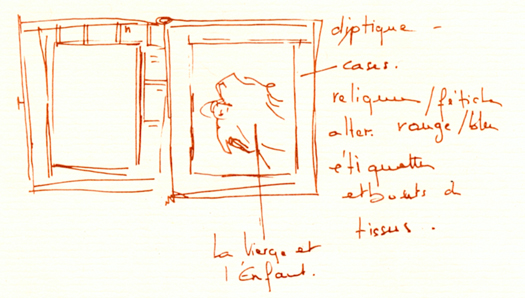 n
diptique -
cases.
reliques/fétiches
alter. rouge/bleu
étiquettes
et bouts de
tissus.
La Vierge et
l'Enfant.